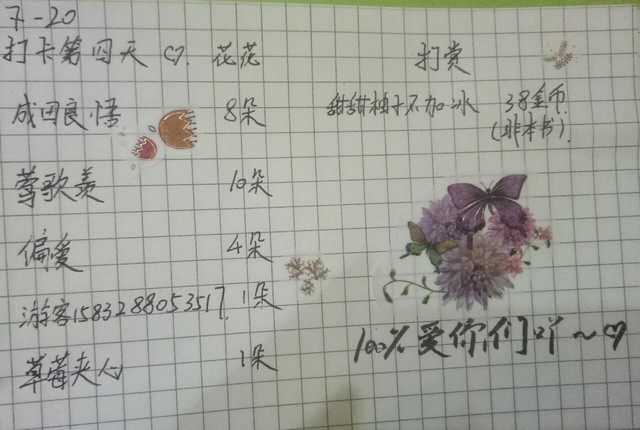 7-20
打卡第四天 ♡. 花花 打赏
成田良悟 8朵 甜甜柚子不加冰 38金币
(非本书).
莺歌羡 10朵
偏爱 4朵
游客1583288053517. 1朵
草莓夹心 1朵
100%爱你们吖~♡